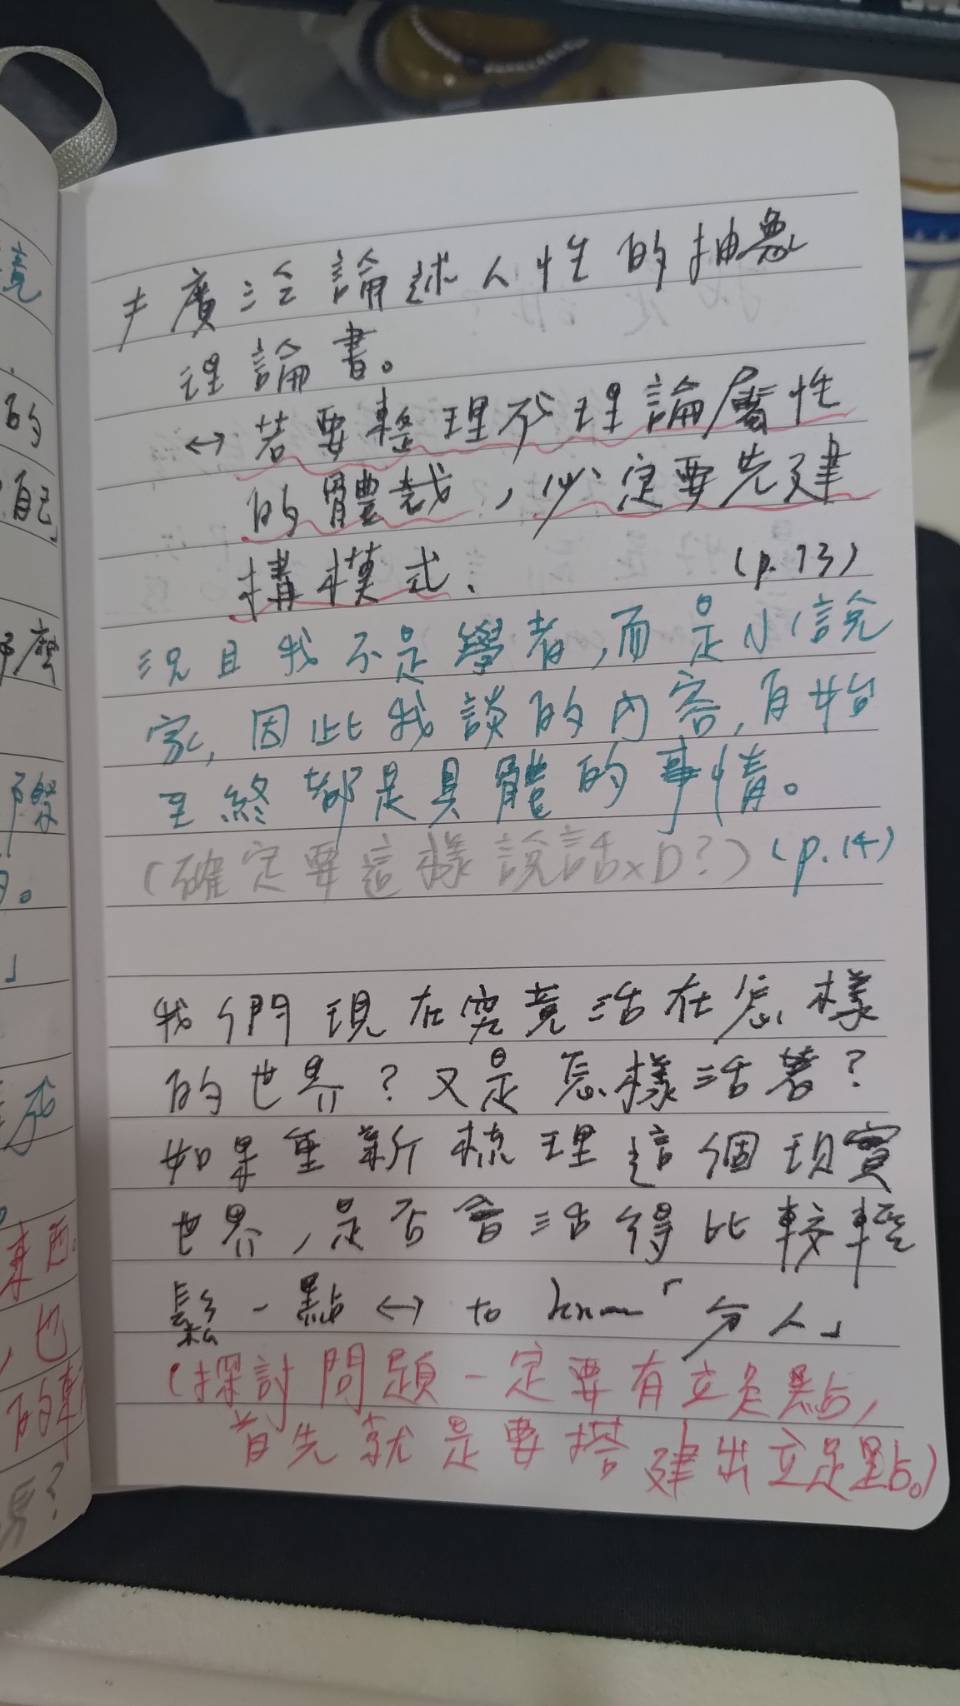 ≠廣泛論述人性的抽象
理論書。
↔若要整理成理論屬性
的體裁，必定要先建
構模式、 (p.13)
況且我不是學者,而是小說
家,因此我談的內容,自始
至終都是具體的事情。
(確定要這樣說話xD?) (p.14)
我們現在究竟活在怎樣
的世界?又是怎樣活著?
如果重新梳理這個現實
世界,是否會活得比較輕
鬆一點↔to know「分人」
(探討問題一定要有立足點,
首先就是要搭建出立足點。)
的
自己
那麼
際
。
」
成
東西。
,也
的
?